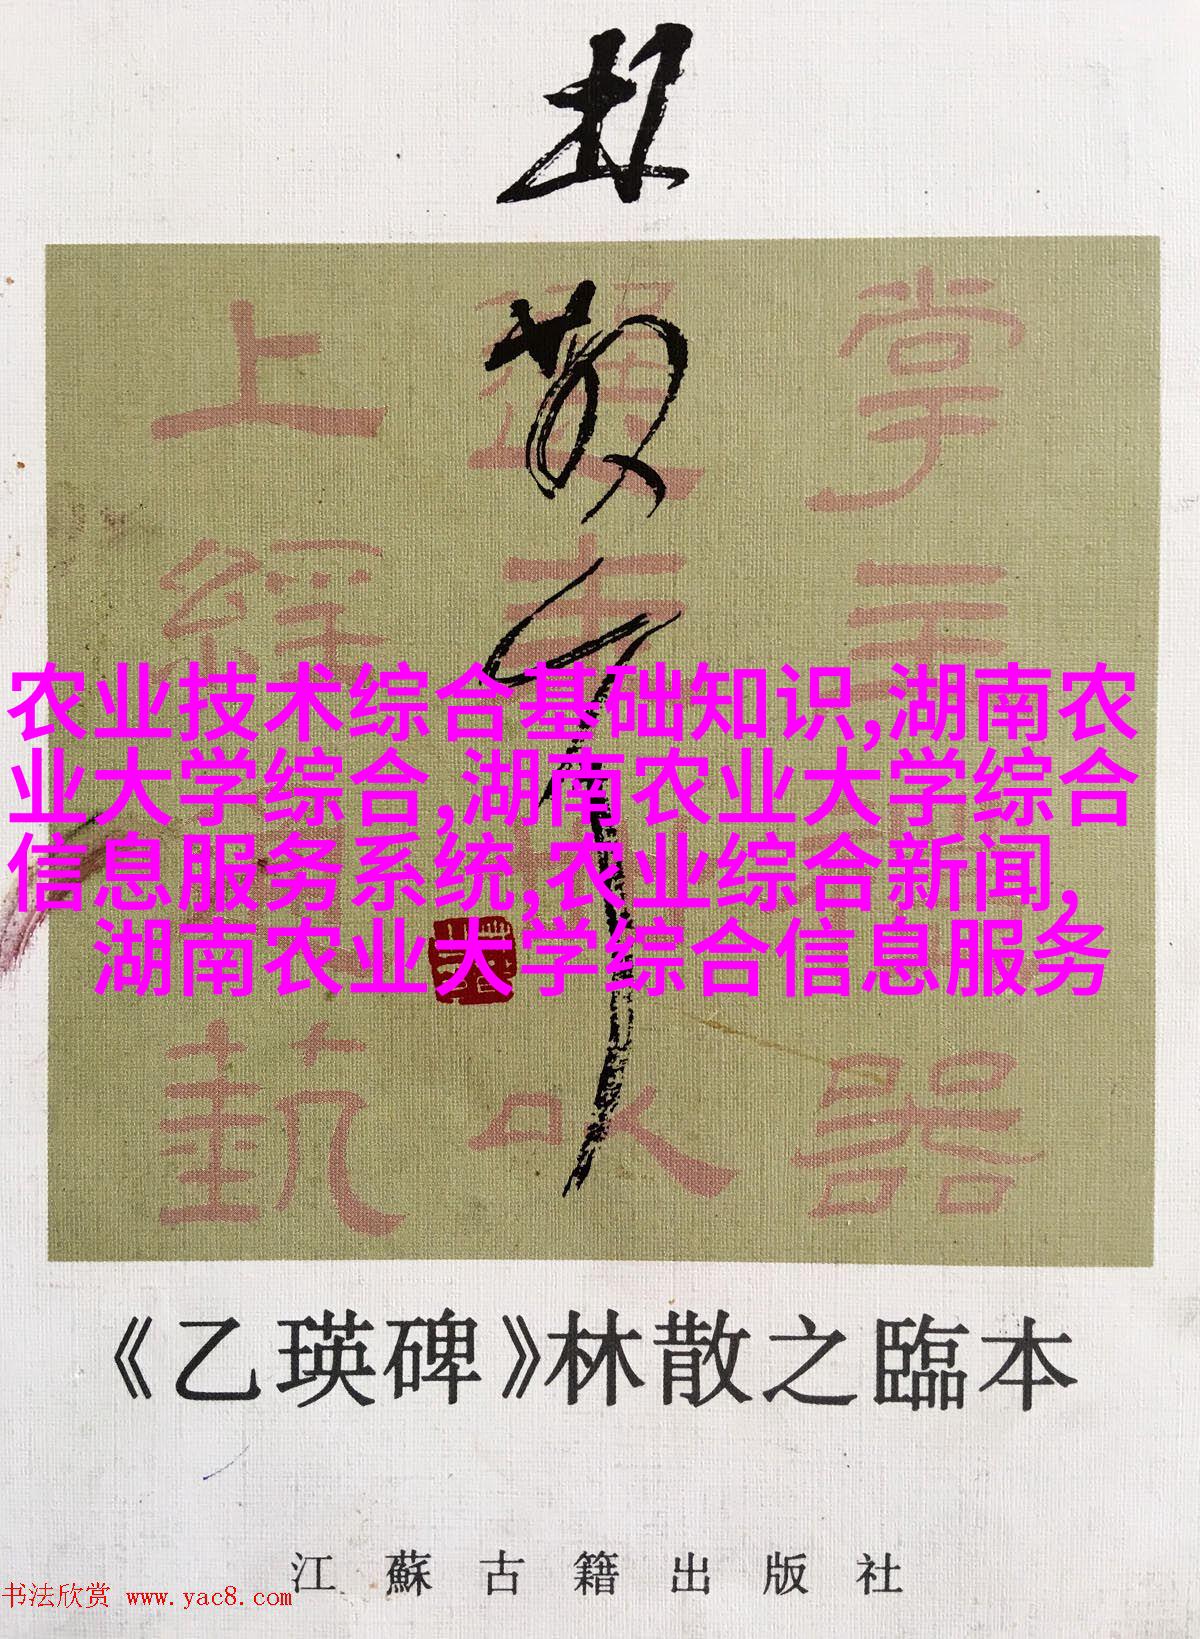 林
散
掌主器
以
上經藝
农业技术综合基础知识,湖南农
业大学综合,湖南农业大学综合
信息服务系统,农业综合新闻,
湖南农业大学综合信息服务
《乙瑛碑》林散之臨本
江蘇古籍出版社
书法欣赏 www.yac8.com